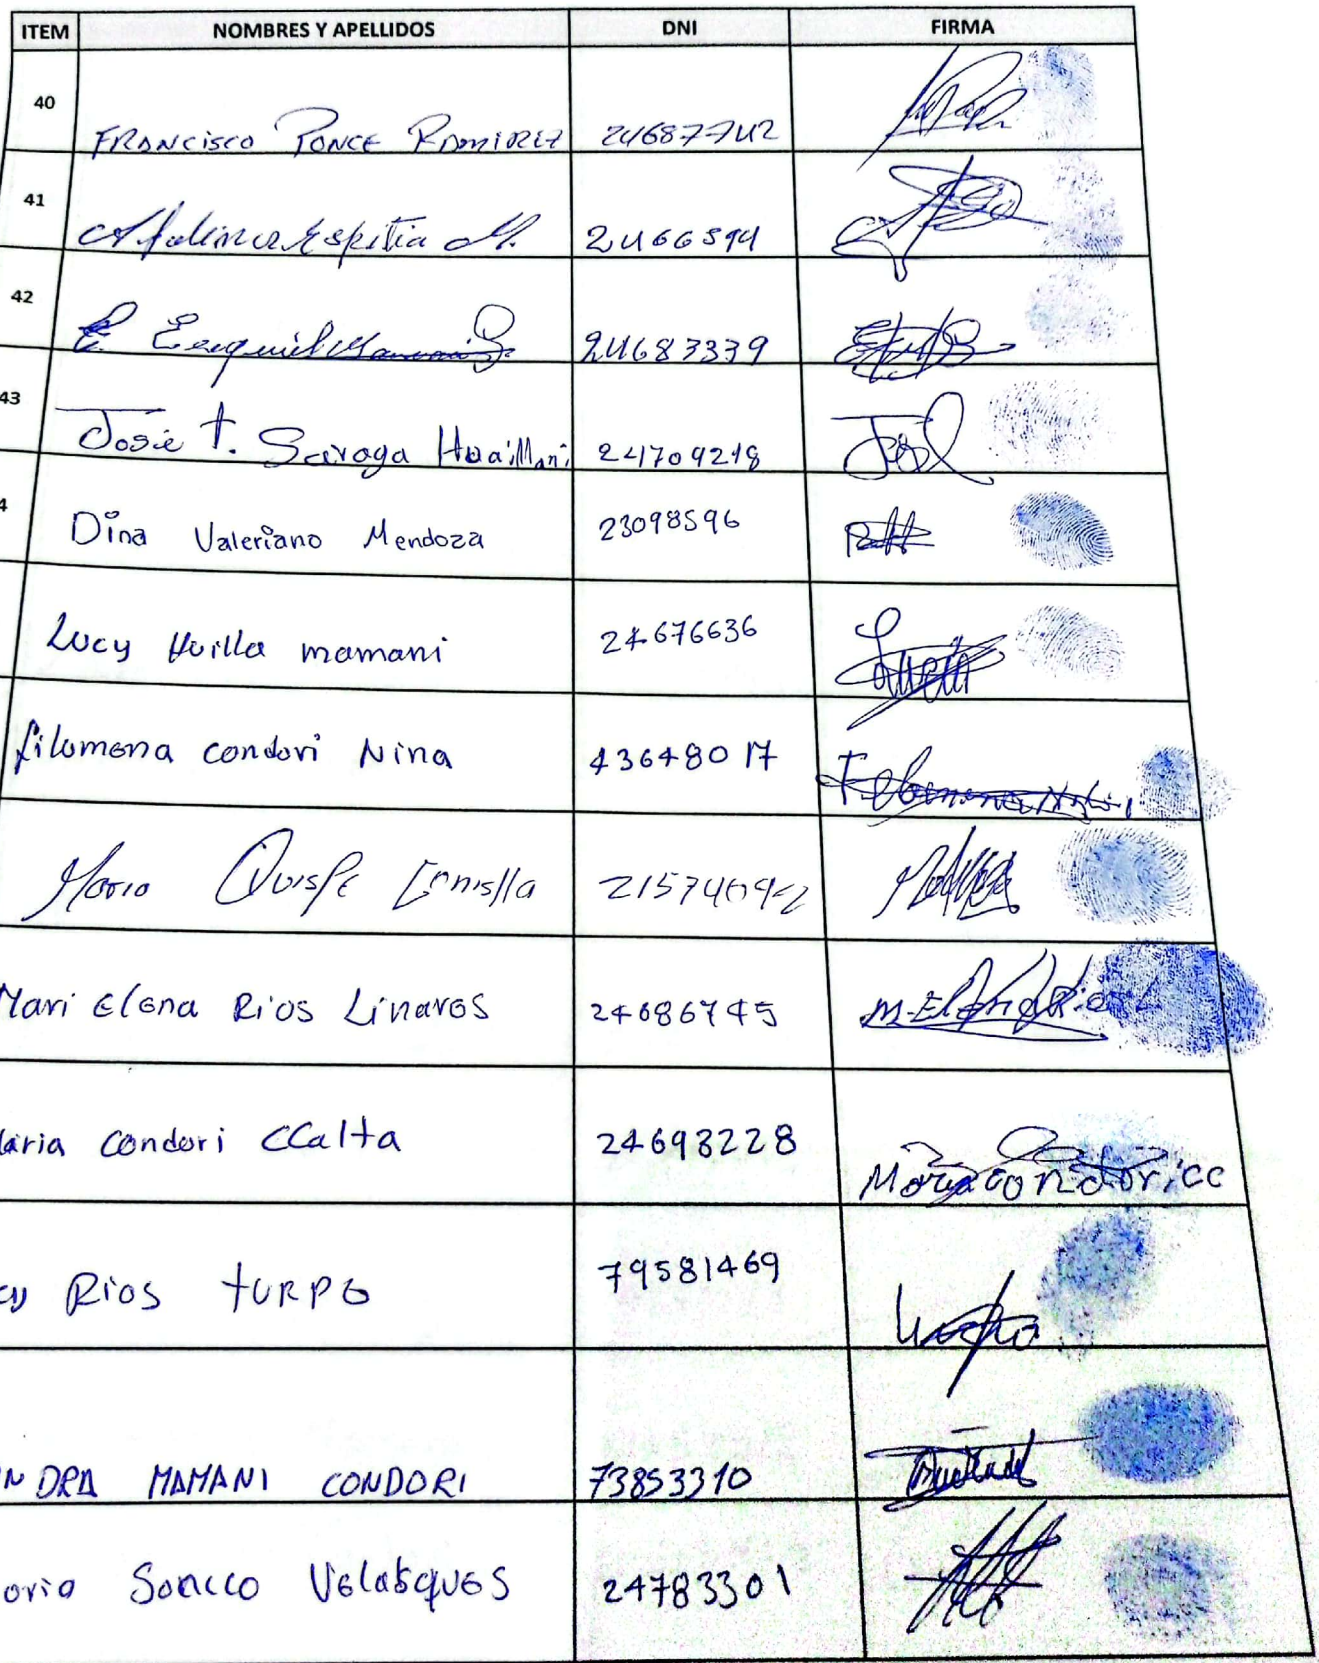 ITEM NOMBRES Y APELLIDOS DNI FIRMA
40 FRANCISCO PONCE RAMIREZ 24687742
41 Espitia M. 2466594
42 Ezequiel Mamani 24683339
43 José T. Sairaga Huaillani 24709218
4 Dina Valeriano Mendoza 23098596
Lucy Huilla mamani 24676636
filomena condori Nina 43648017
Mario Quispe 
Mari Elena Rios Linares 24686745 M-Elena Rios L
aria Condori CCalta 24693228 Maria condori cc
Rios TURPO 79581469
NDRA MAMANI CONDORI 73853310
orio Soncco Velasques 24783301